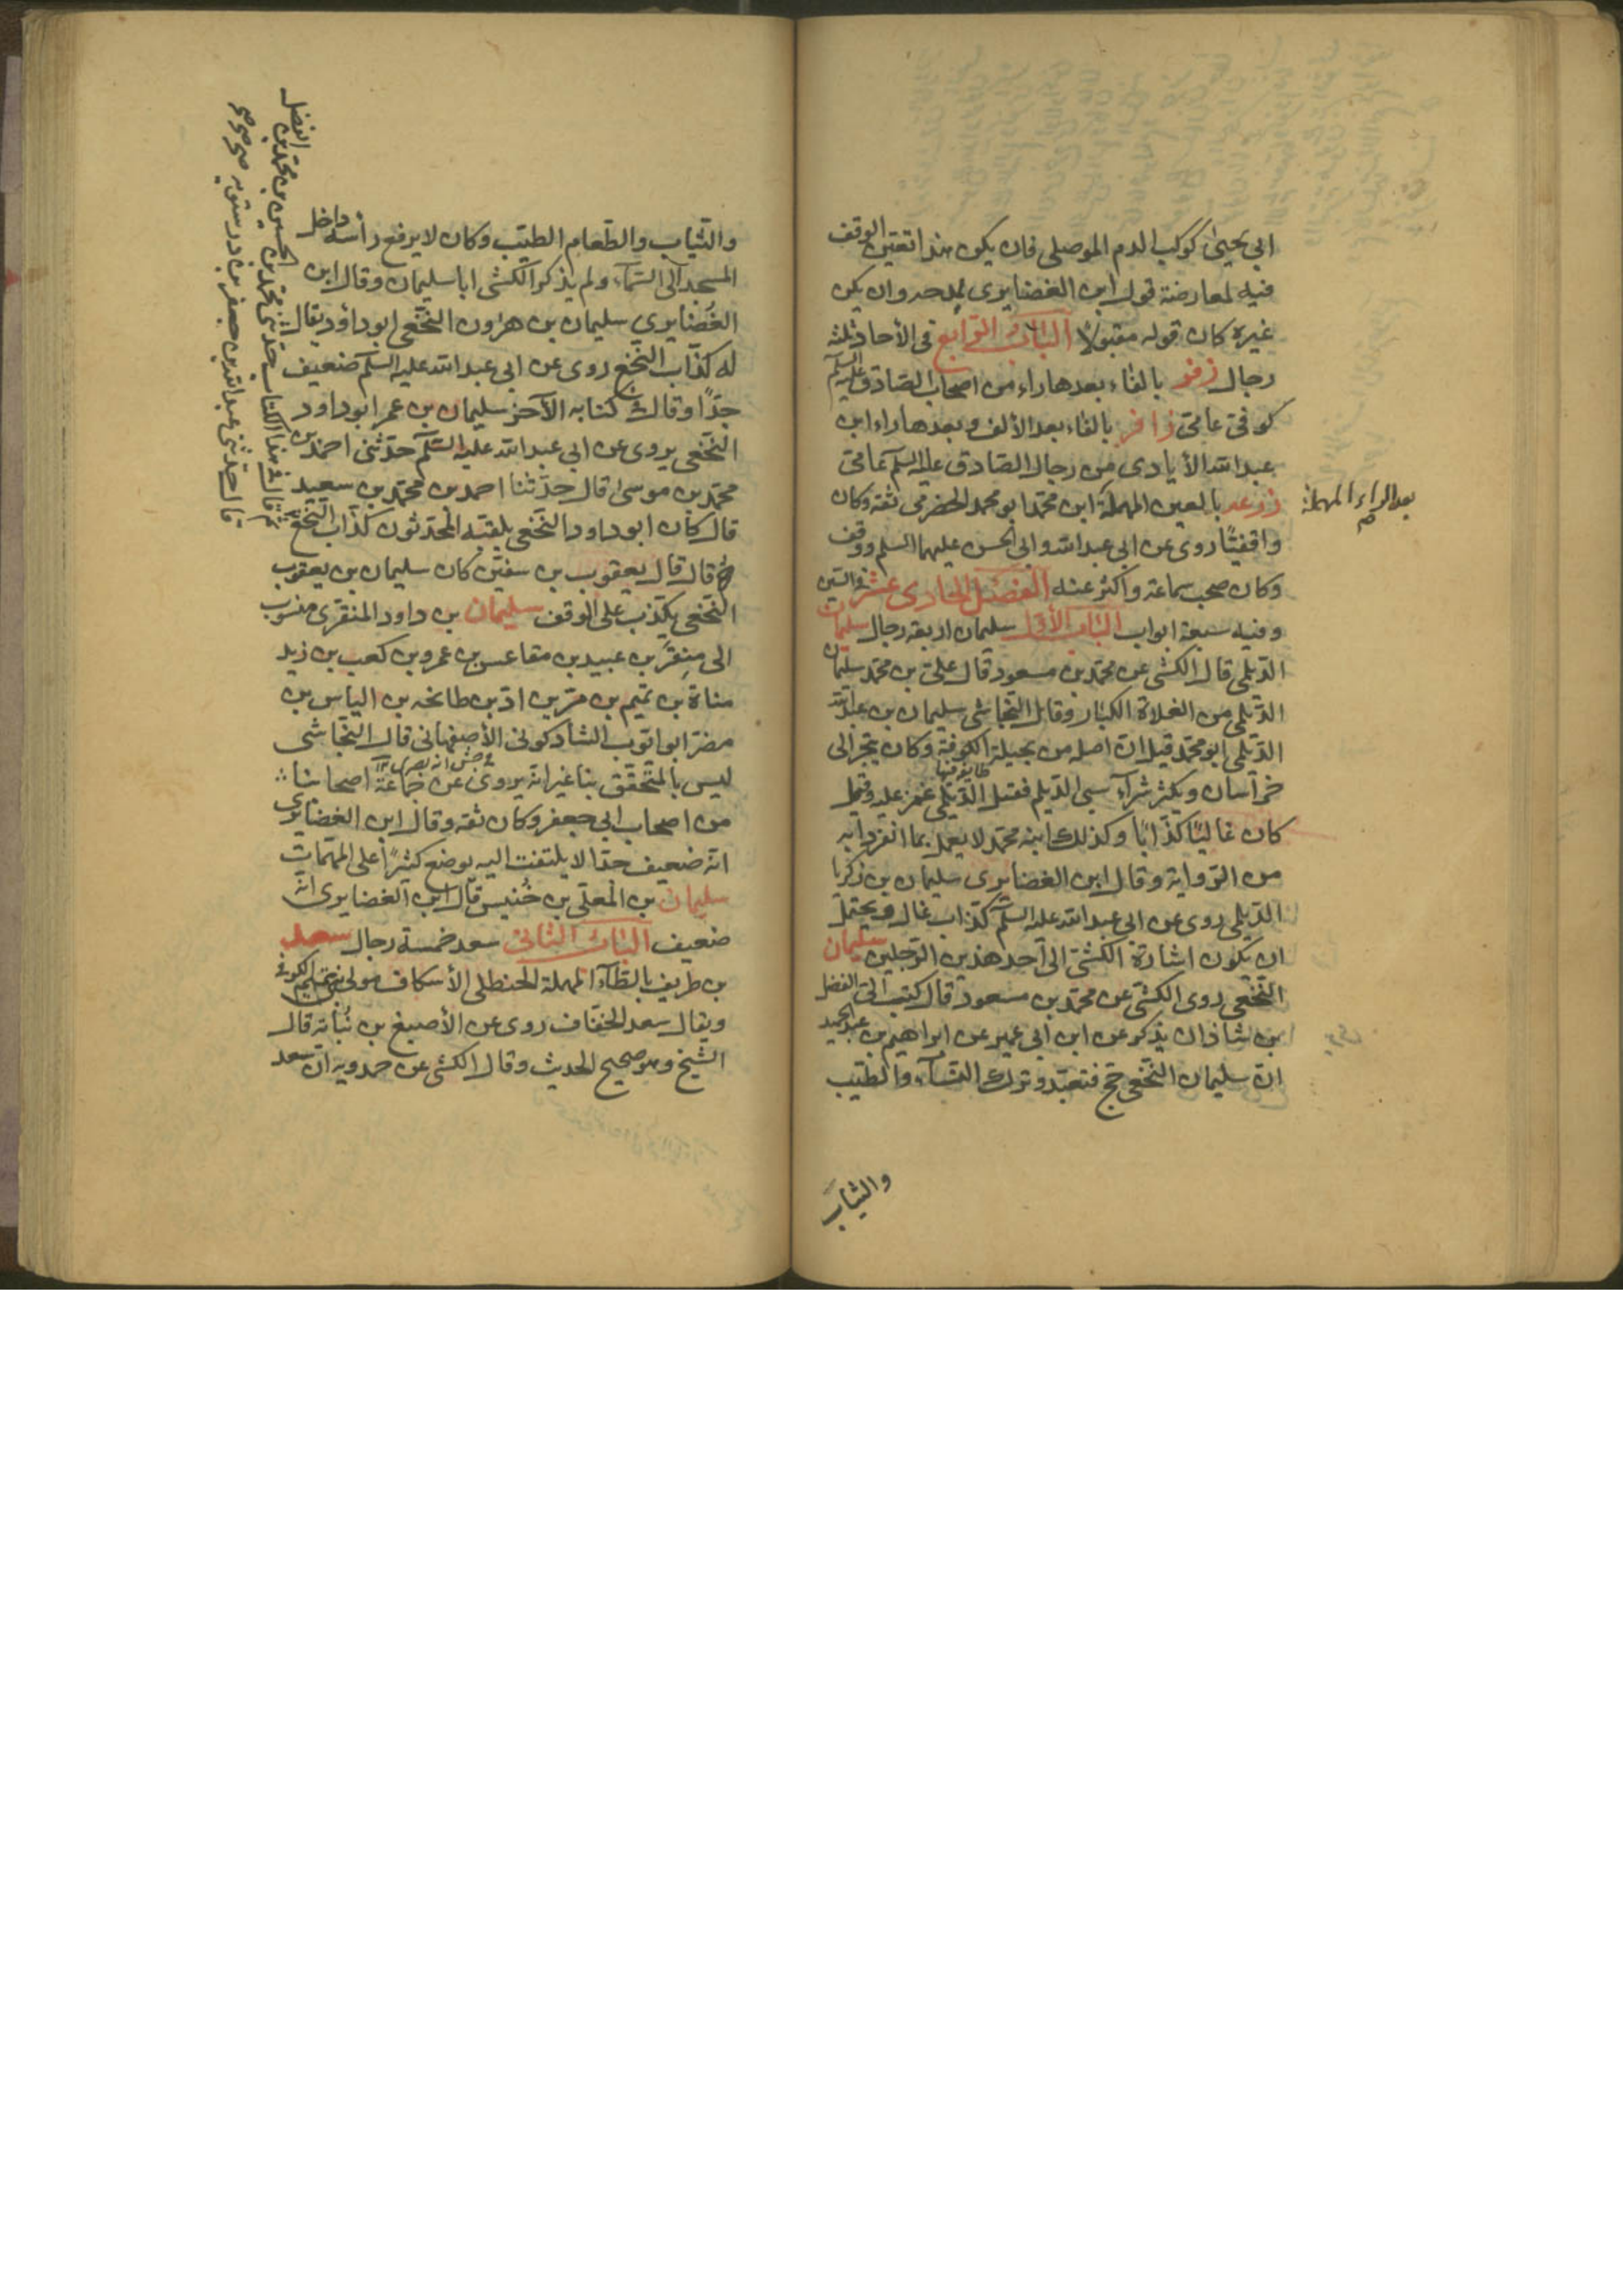 ابي يحيى كوكب الدم الموصلي فان يكون هذا تعين الوقف
فيه لمعارضة قول ابن الغضايري لمدحه وان يكن
غيره كان قوله مقبولا الباب الرابع في الآحاد ثلثة
رجال زفر بالفاء بعدها راء من اصحاب الصادق عليه السلم
كوفي عامي زافر بالفاء بعد الألف وبعدها راء ابن
عبد الله الأيادي من رجال الصادق عليه السلم عامي
زرعه بالعين المهملة ابن محمد ابو محمد الحضرمي ثقة وكان
بعد الراء المهملة
واقفيا روى عن ابي عبد الله وابي الحسن عليهما السلم ووقف
وكان صحب سماعة واكثر عنه الفصل الحادي عشر في السين
وفيه سبعة ابواب الباب الأول سليمان اربعة رجال سليمان
الديلمي قال الكشي عن محمد بن مسعود قال علي بن محمد سليمان
الديلمي من الغلاة الكبار وقال النجاشي سليمان بن عبد الله
الديلمي ابو محمد قيل ان اصله من بجيلة الكوفة وكان يتجر الى
خراسان ويكثر شراء سبي الديلم فقيل الديلمي غمز عليه وقيل
كان غاليا كذابا وكذلك ابنه محمد لا يعمل بما انفردا به
من الرواية وقال ابن الغضايري سليمان بن زكريا
الديلمي روى عن ابي عبد الله عليه السلم كذاب غال ويحتمل
ان يكون اشارة الكشي الى احد هذين الرجلين سليمان
النخعي روى الكشي عن محمد بن مسعود قال كتب الي الفضل
بن شاذان يذكر عن ابن ابي عمير عن ابراهيم بن عبد الحميد
ان سليمان النخعي حج فتعبد وترك النساء والطيب
والثياب
والثياب والطعام الطيب وكان لا يرفع رأسه داخل
المسجد الى السماء ولم يذكر الكشي ابا سليمان وقال ابن
الغضايري سليمان بن هرون النخعي ابو داود يقال
له كذاب النخع روى عن ابي عبد الله عليه السلم ضعيف
جدا وقال في كتابه الآخر سليمان بن عمر ابو داود
النخعي يروي عن ابي عبد الله عليه السلم حدثني احمد بن
محمد بن موسى قال حدثنا احمد بن محمد بن سعيد
قال كان ابو داود النخعي يلقبه المحدثون كذاب النخع
قال قال يعقوب بن سفين كان سليمان بن يعقوب
النخعي يكذب على الوقف سليمان بن داود المنقري منسوب
الى منقر بن عبيد بن مقاعس بن عمرو بن كعب بن زيد
مناة بن تميم بن مر بن اد بن طابخه بن الياس بن
مضر ابو ايوب الشاذكوني الأصفهاني قال النجاشي
ليس بالمتحقق بنا غير انه يروي عن جماعة اصحابنا
من اصحاب ابي جعفر وكان ثقة وقال ابن الغضايري
انه ضعيف جدا لا يلتفت اليه يوضع كثيرا على المهمات
سليمان بن المعلى بن خنيس قال ابن الغضايري انه
ضعيف الباب الثاني سعد خمسة رجال سعد
بن طريف بالطاء المهملة الحنظلي الأسكاف مولى بني تميم الكوفي
ويقال سعد الخفاف روى عن الأصبغ بن نباته قال
الشيخ وهو صحيح الحديث وقال الكشي عن حمدويه ان سعد
ثم قال في هذا الكتاب حدثني محمد بن الحسين بن محمد بن الفضل
قال حدثني عبد الله بن جعفر بن درستويه